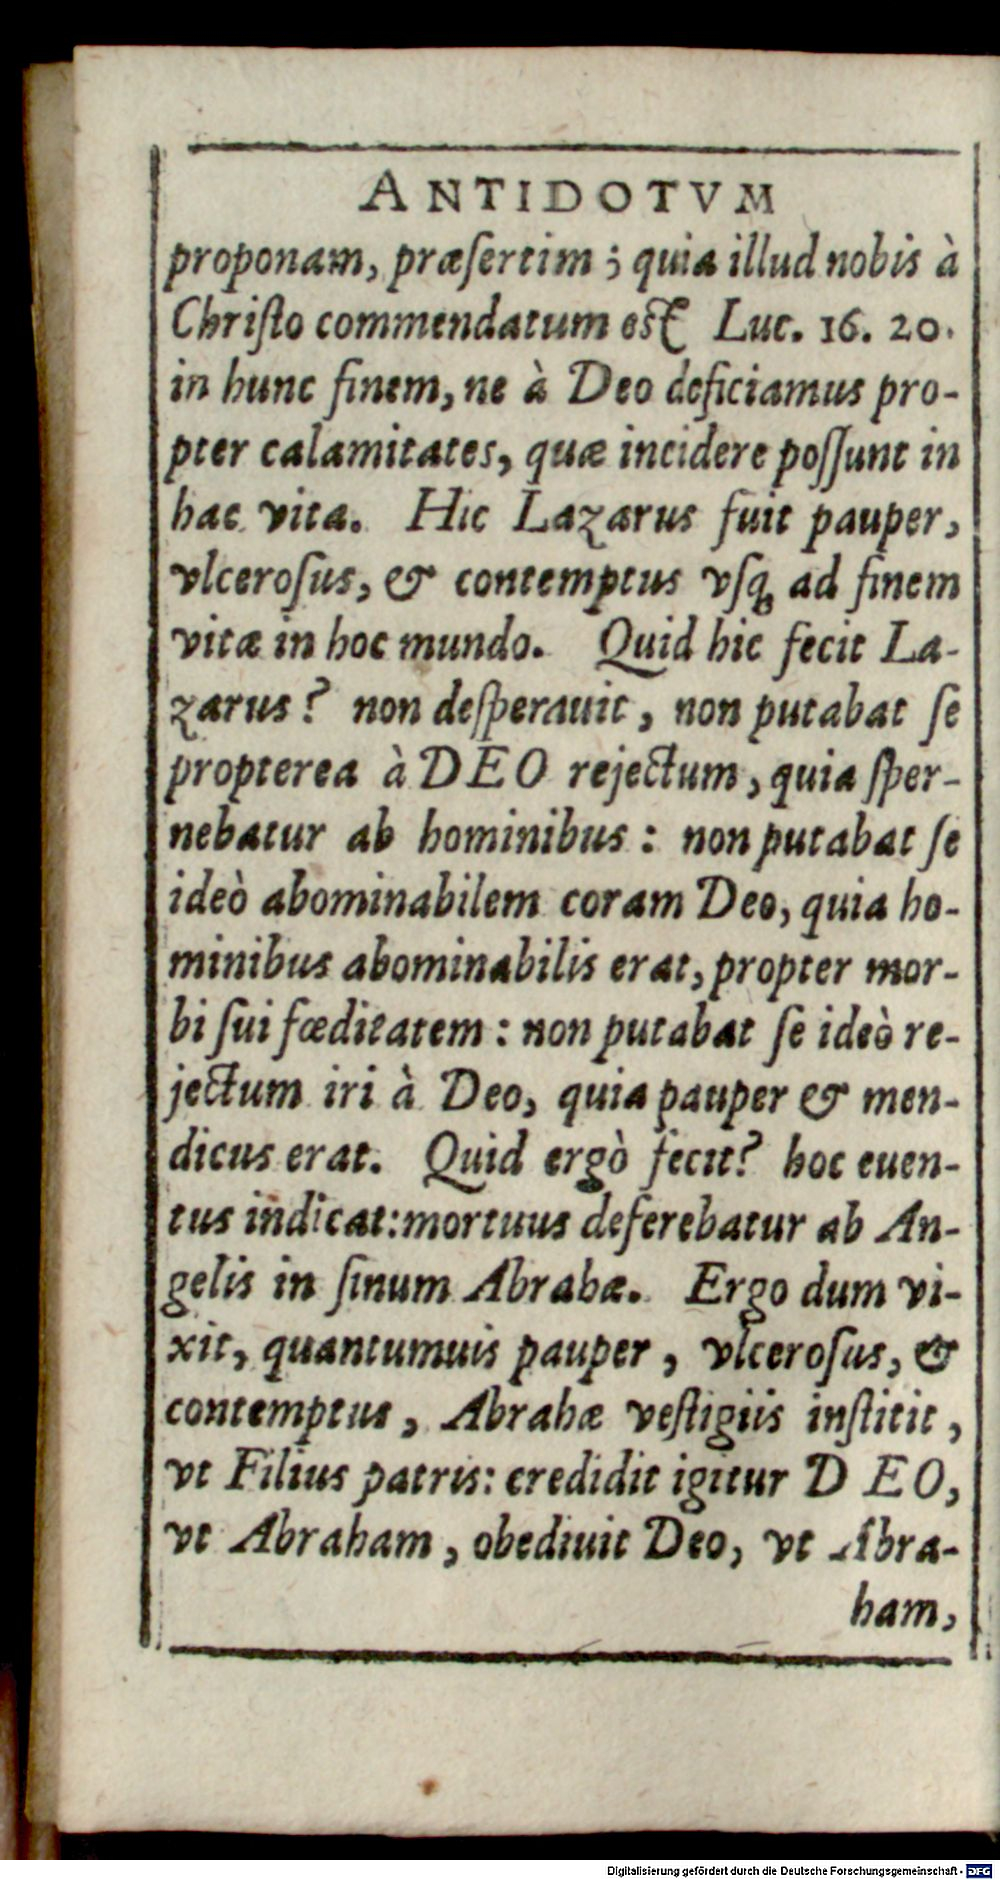 ANTIDOTVM
proponam, præſertim; quia illud nobis à
Chriſto commendatum eſt Luc. 16. 20.
in hunc finem, ne à Deo deficiamus pro-
pter calamitates, quæ incidere poſſunt in
hac vita. Hic Lazarus fuit pauper,
vlceroſus, & contemptus vſq; ad finem
vitæ in hoc mundo. Quid hic fecit La-
zarus? non deſperauit, non putabat ſe
propterea à DEO rejectum, quia ſper-
nebatur ab hominibus: non putabat ſe
ideò abominabilem coram Deo, quia ho-
minibus abominabilis erat, propter mor-
bi ſui fœditatem: non putabat ſe ideò re-
jectum iri à Deo, quia pauper & men-
dicus erat. Quid ergò fecit? hoc euen-
tus indicat: mortuus deferebatur ab An-
gelis in ſinum Abrahæ. Ergo dum vi-
xit, quantumuis pauper, vlceroſus, &
contemptus, Abrahæ veſtigiis inſtitit,
vt Filius patris: credidit igitur DEO,
vt Abraham, obediuit Deo, vt Abra-
ham,
Digitalisierung gefördert durch die Deutsche Forschungsgemeinschaft - DFG